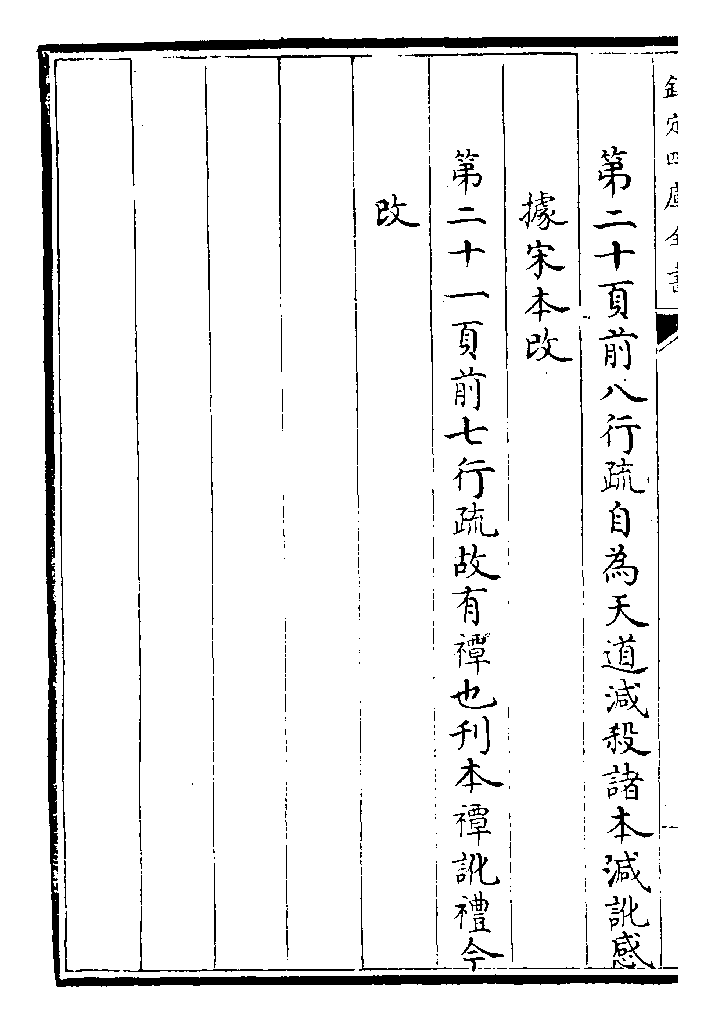 欽定四庫全書
第二十頁前八行疏自為天道減殺諸本減訛感
據宋本改
第二十一頁前七行疏故有禫也刊本禫訛禮今
改